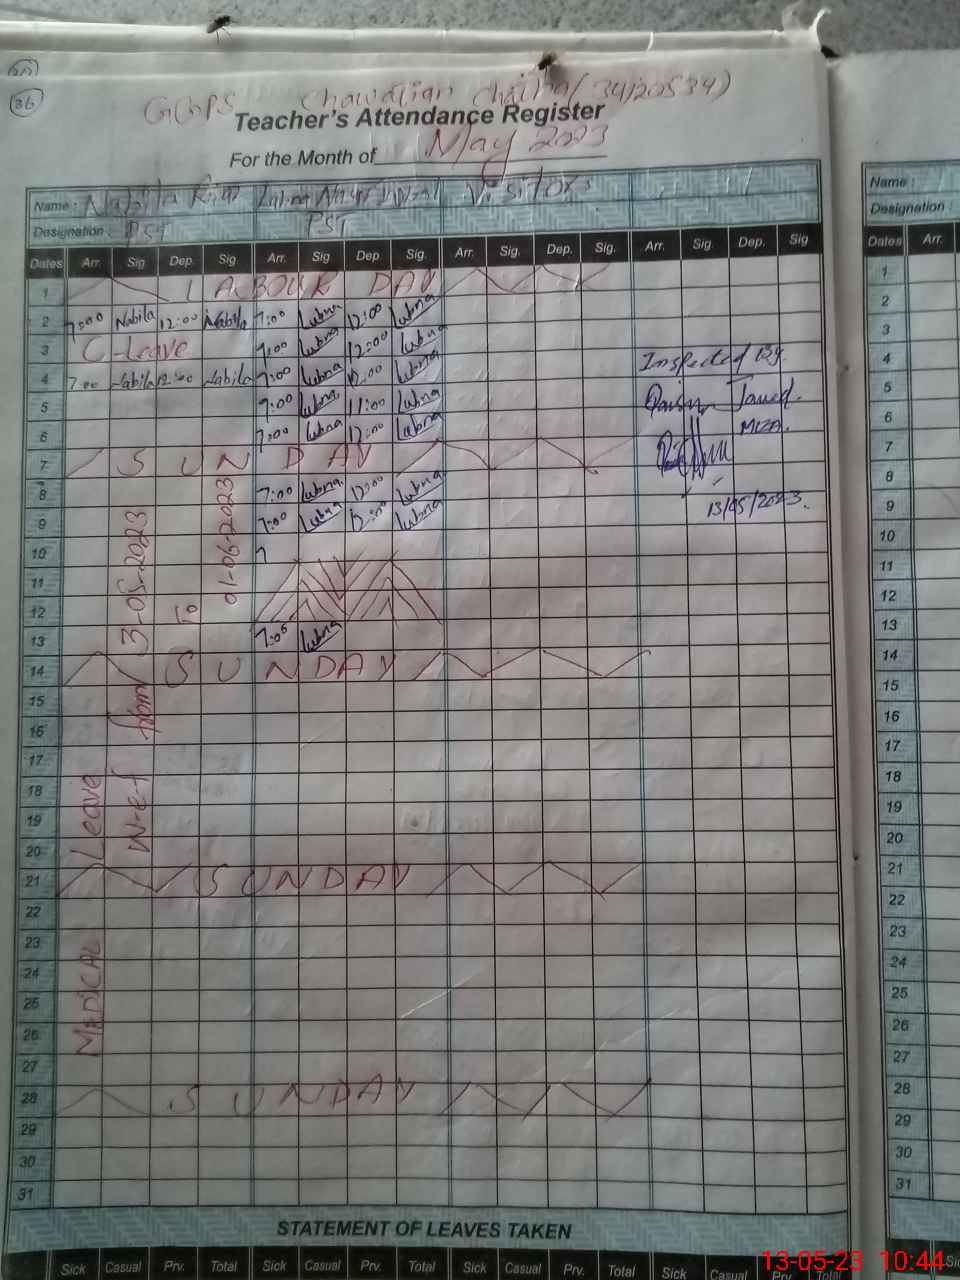 36
GGPS Chawalian Chatha (34120534)
Teacher's Attendance Register
For the Month of May 2023
Name : Nabila Lubna Visitors
Designation : PST PST
Dates Arr. Sig Dep. Sig Arr. Sig. Dep. Sig. Arr. Sig. Dep. Sig. Arr. Sig. Dep. Sig
1 LABOUR DAY
2 7:00 Nabila 12:00 Nabila 7:00 Lubna 12:00 Lubna
3 C-Leave 7:00 Lubna 12:00 Lubna
4 7:00 Nabila 12:00 Nabila 7:00 Lubna 12:00 Lubna
5 7:00 Lubna 11:00 Lubna
6 7:00 Lubna 12:00 Lubna
7 SUNDAY
8 7:00 Lubna 12:00 Lubna
9 7:00 Lubna 12:00 Lubna
10 7
11
12
13 7:05 Lubna
14 SUNDAY
15
16
17
18
19
20
21 SUNDAY
22
23
24
25
26
27
28 SUNDAY
29
30
31
MEDICAL Leave
W-e-f from 3-05-2023
To
01-06-2023
Inspected By.
Javed.
MEA.
13/05/2023.
STATEMENT OF LEAVES TAKEN
Sick Casual Prv. Total Sick Casual Prv. Total Sick Casual Prv. Total Sick Casual Prv. Total
Name :
Designation :
Dates Arr.
1
2
3
4
5
6
7
8
9
10
11
12
13
14
15
16
17
18
19
20
21
22
23
24
25
26
27
28
29
30
31
13-05-23 10:44